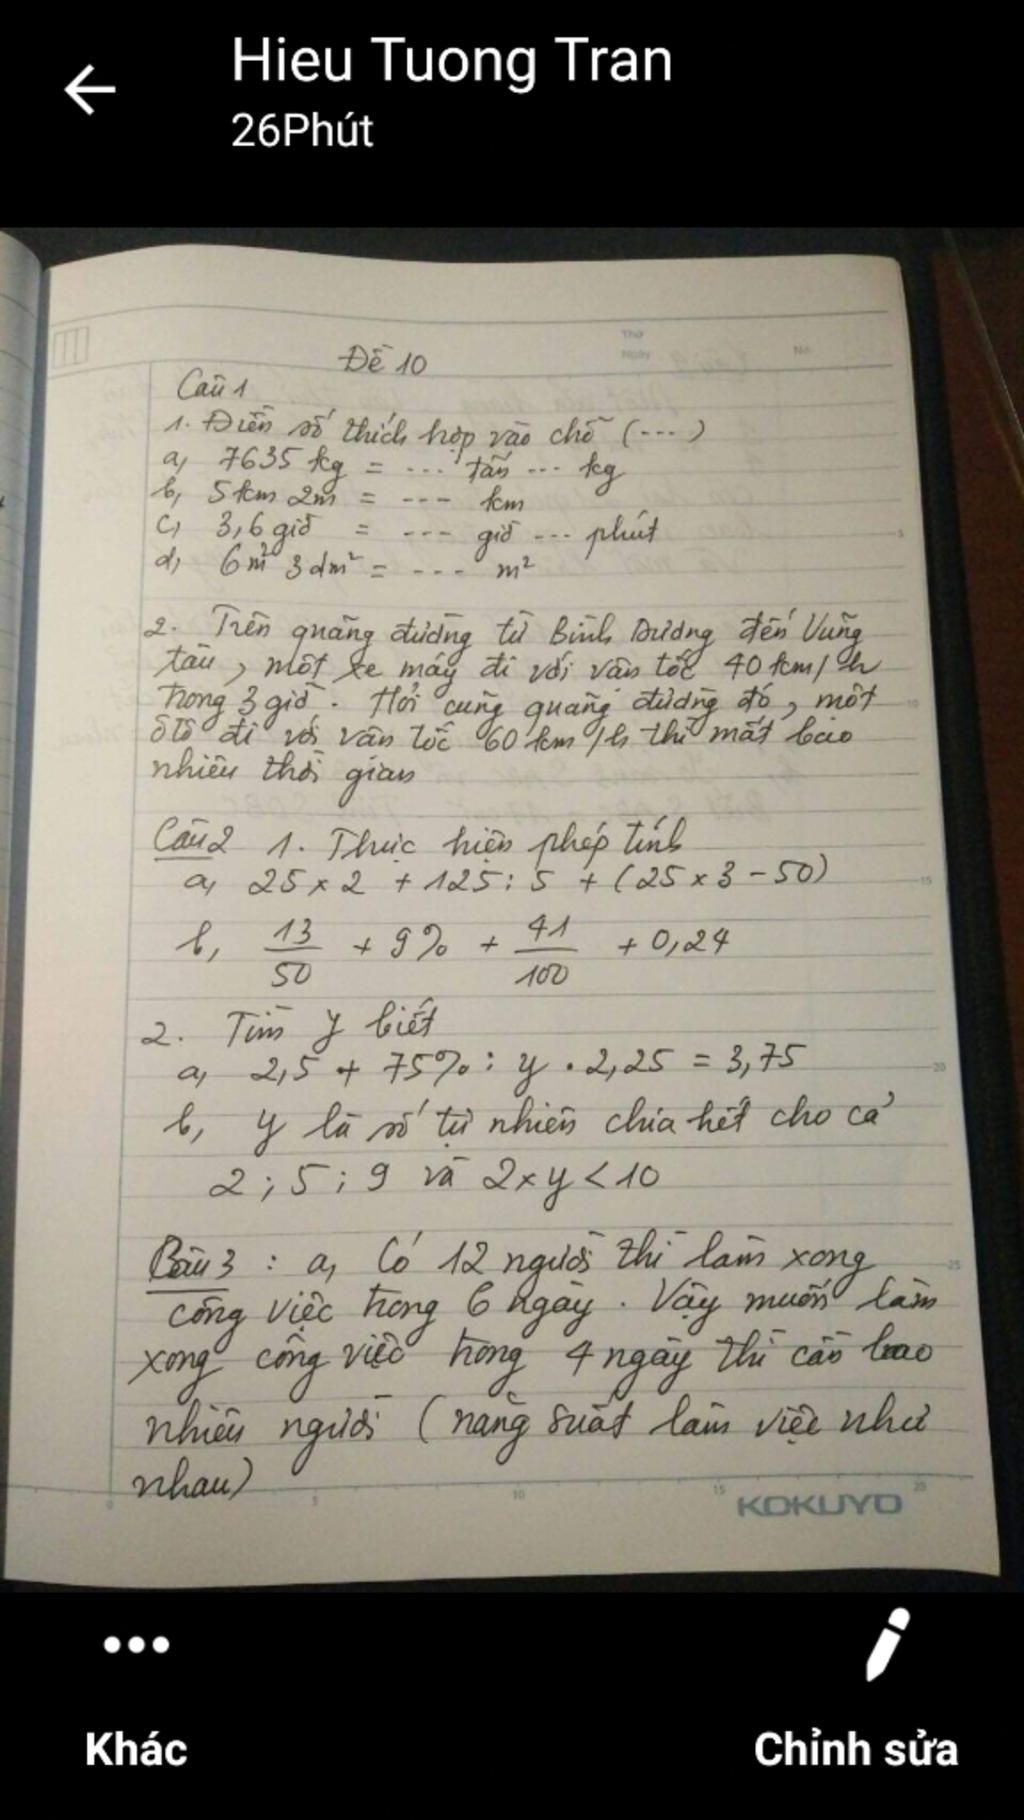 Hieu Tuong Tran
26Phút
Thứ
Ngày
No.
Đề 10
Câu 1
1. Điền số thích hợp vào chỗ (...)
a, 7635 kg = ... tấn ... kg
b, 5 km 2m = ... km
c, 3,6 giờ = ... giờ ... phút
d, 6m² 3dm² = ... m²
2. Trên quãng đường từ Bình Dương đến Vũng
tàu, một xe máy đi với vận tốc 40 km/h
trong 3 giờ. Hỏi cùng quãng đường đó, một
ôtô đi với vận tốc 60 km/h thì mất bao
nhiêu thời gian
Câu 2 1. Thực hiện phép tính
a, 25 x 2 + 125 : 5 + (25 x 3 - 50)
b, 13/50 + 9% + 41/100 + 0,24
2. Tìm y biết
a, 2,5 + 75% : y . 2,25 = 3,75
b, y là số tự nhiên chia hết cho cả
2 ; 5 ; 9 và 2 x y < 10
Câu 3 : a, Có 12 người thì làm xong
công việc trong 6 ngày. Vậy muốn làm
xong công việc trong 4 ngày thì cần bao
nhiêu người (năng suất làm việc như
nhau)
KOKUYO
Khác
Chỉnh sửa